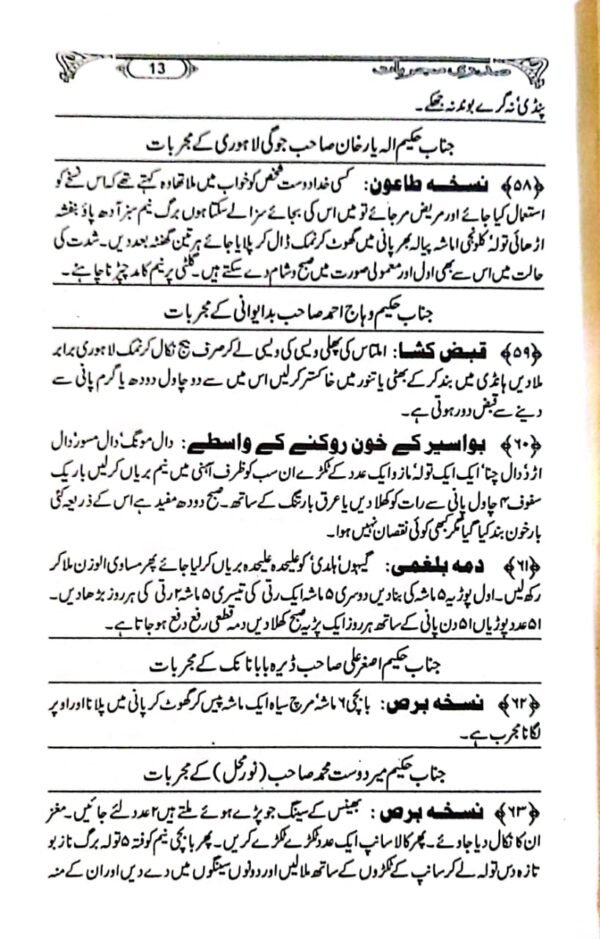 صدری مجربات
13
پنڈی نہ گرے بوند نہ جھکے۔
جناب حکیم الہ یار خان صاحب جوگی لاہوری کے مجربات
﴿۵۸﴾ نسخہ طاعون: کسی خدا دوست شخص کو خواب میں ملا تھا وہ کہتے تھے کہ اس نسخے کو
استعمال کیا جائے اور مریض مر جائے تو میں اس کی بجائے سزا لے سکتا ہوں برگ نیم سبز آدھ پاؤ بنفشہ
اڑھائی تولہ کلونجی ا ماشہ پیالہ بھر پانی میں گھوٹ کر نمک ڈال کر پلایا جائے ہر تین گھنٹہ بعد دیں۔ شدت کی
حالت میں اس سے بھی اول اور معمولی صورت میں صبح و شام دے سکتے ہیں۔ گلٹی پر نیم کا مد چپڑنا چاہئے۔
جناب حکیم وہاج احمد صاحب بدایوانی کے مجربات
﴿۵۹﴾ قبض کشا: املتاس کی پھلی ویسی کی ویسی لے کر صرف بیج نکال کر نمک لاہوری برابر
ملا دیں ہانڈی میں بند کر کے بھٹی یا تنور میں خاکستر کر لیں اس میں سے دو چاول دودھ یا گرم پانی سے
دینے سے قبض دور ہوتی ہے۔
﴿۶۰﴾ بواسیر کے خون روکنے کے واسطے: دال مونگ، دال مسور، دال
اڑد، دال چنا، ایک ایک تولہ، مازو ایک عدد کے ٹکڑے ان سب کو ظرف آہنی میں نیم بریاں کر لیں باریک
سفوف ۴ چاول پانی سے رات کو کھلا دیں یا عرق بارتنگ کے ساتھ۔ صبح دودھ مفید ہے اس کے ذریعہ کئی
بار خون بند کیا گیا مگر کبھی کوئی نقصان نہیں ہوا۔
﴿۶۱﴾ دمہ بلغمی: گیہوں، ہلدی، کو علیحدہ علیحدہ بریاں کر لیا جائے پھر مساوی الوزن ملا کر
رکھ لیں۔ اول پوڑیہ ۵ ماشہ کی بنا دیں دوسری ۵ ماشہ ایک رتی کی تیسری ۵ ماشہ ۲ رتی کی ہر روز بڑھا دیں۔
۵۱ عدد پوڑیاں ۵۱ دن پانی کے ساتھ ہر روز ایک پڑیہ صبح کھلا دیں دمہ قطعی رفع دفع ہو جاتا ہے۔
جناب حکیم اصغر علی صاحب ڈیرہ بابا نانک کے مجربات
﴿۶۲﴾ نسخہ برص: بابچی ۶ ماشہ، مرچ سیاہ ایک ماشہ پیس کر گھوٹ کر پانی میں پلانا اور اوپر
لگانا مجرب ہے۔
جناب حکیم میر دوست محمد صاحب (نور محل) کے مجربات
﴿۶۳﴾ نسخہ برص: بھینس کے سینگ جو پڑے ہوئے ملتے ہیں ۲ عدد لئے جائیں۔ مغز
ان کا نکال دیا جاوے۔ پھر کالا سانپ ایک عدد ٹکڑے ٹکڑے کریں۔ پھر بابچی نیم کوفتہ ۵ تولہ برگ ناز بو
تازہ دس تولہ لے کر سانپ کے ٹکڑوں کے ساتھ ملا لیں اور دونوں سینگوں میں دے دیں اور ان کے منہ